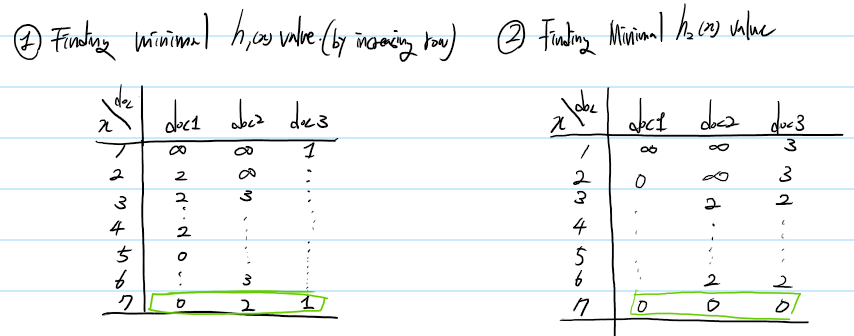 ① Finding minimal h₁(x) value. (by increasing row)
x \ doc doc1 doc2 doc3
1 ∞ ∞ 1
2 2 ∞ :
3 2 3 :
4 2 : :
5 0 : :
6 : 3 :
7 0 2 1
② Finding Minimal h₂(x) value
x \ doc doc1 doc2 doc3
1 ∞ ∞ 3
2 0 ∞ 3
3 . 2 2
4 . : :
5 : : :
6 : 2 2
7 0 0 0